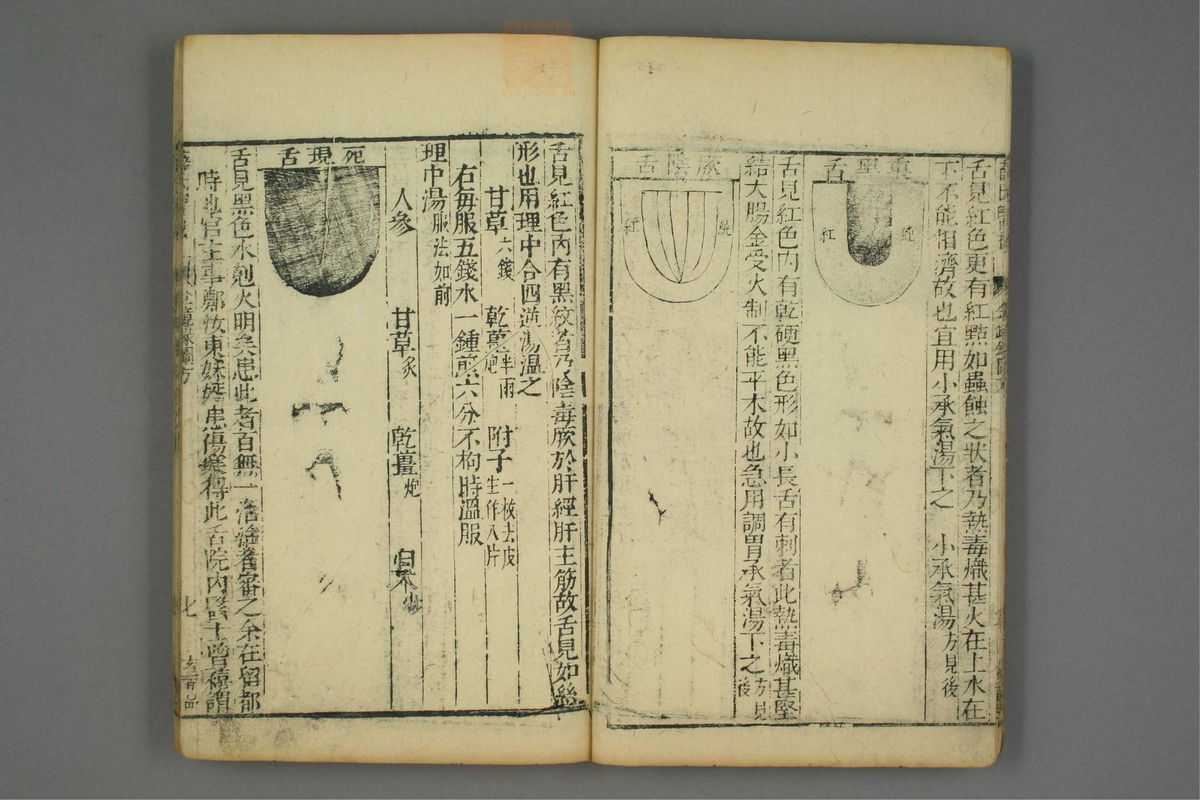 舌見紅色更有紅點如蟲蝕之狀者乃熱毒熾甚火在上水在
下不能相濟故也宜用小承氣湯下之 小承氣湯方見後
舌黑重
純
紅
舌見紅色内有乾硬黑色形如小長舌有刺者此熱毒熾甚堅
結大腸金受火制不能平木故也急用調胃承氣湯下之方見後
舌陰厥
純
紅
舌見紅色内有黑紋者乃陰毒厥於肝經肝主筋故舌見如絲
形也用理中合四逆湯温之
甘草六錢 乾薑半兩炮 附子一枚去皮生作八片
右每服五錢水一鍾煎六分不拘時溫服
理中湯服法如前
人參 甘草炙 乾薑炮 白朮炒
舌現死
舌見黑色水剋火明矣患此者百無一治治者審之余在留都
時地官主事鄭汝東妹婿患傷寒得此舌院内醫士曾禧謂
七